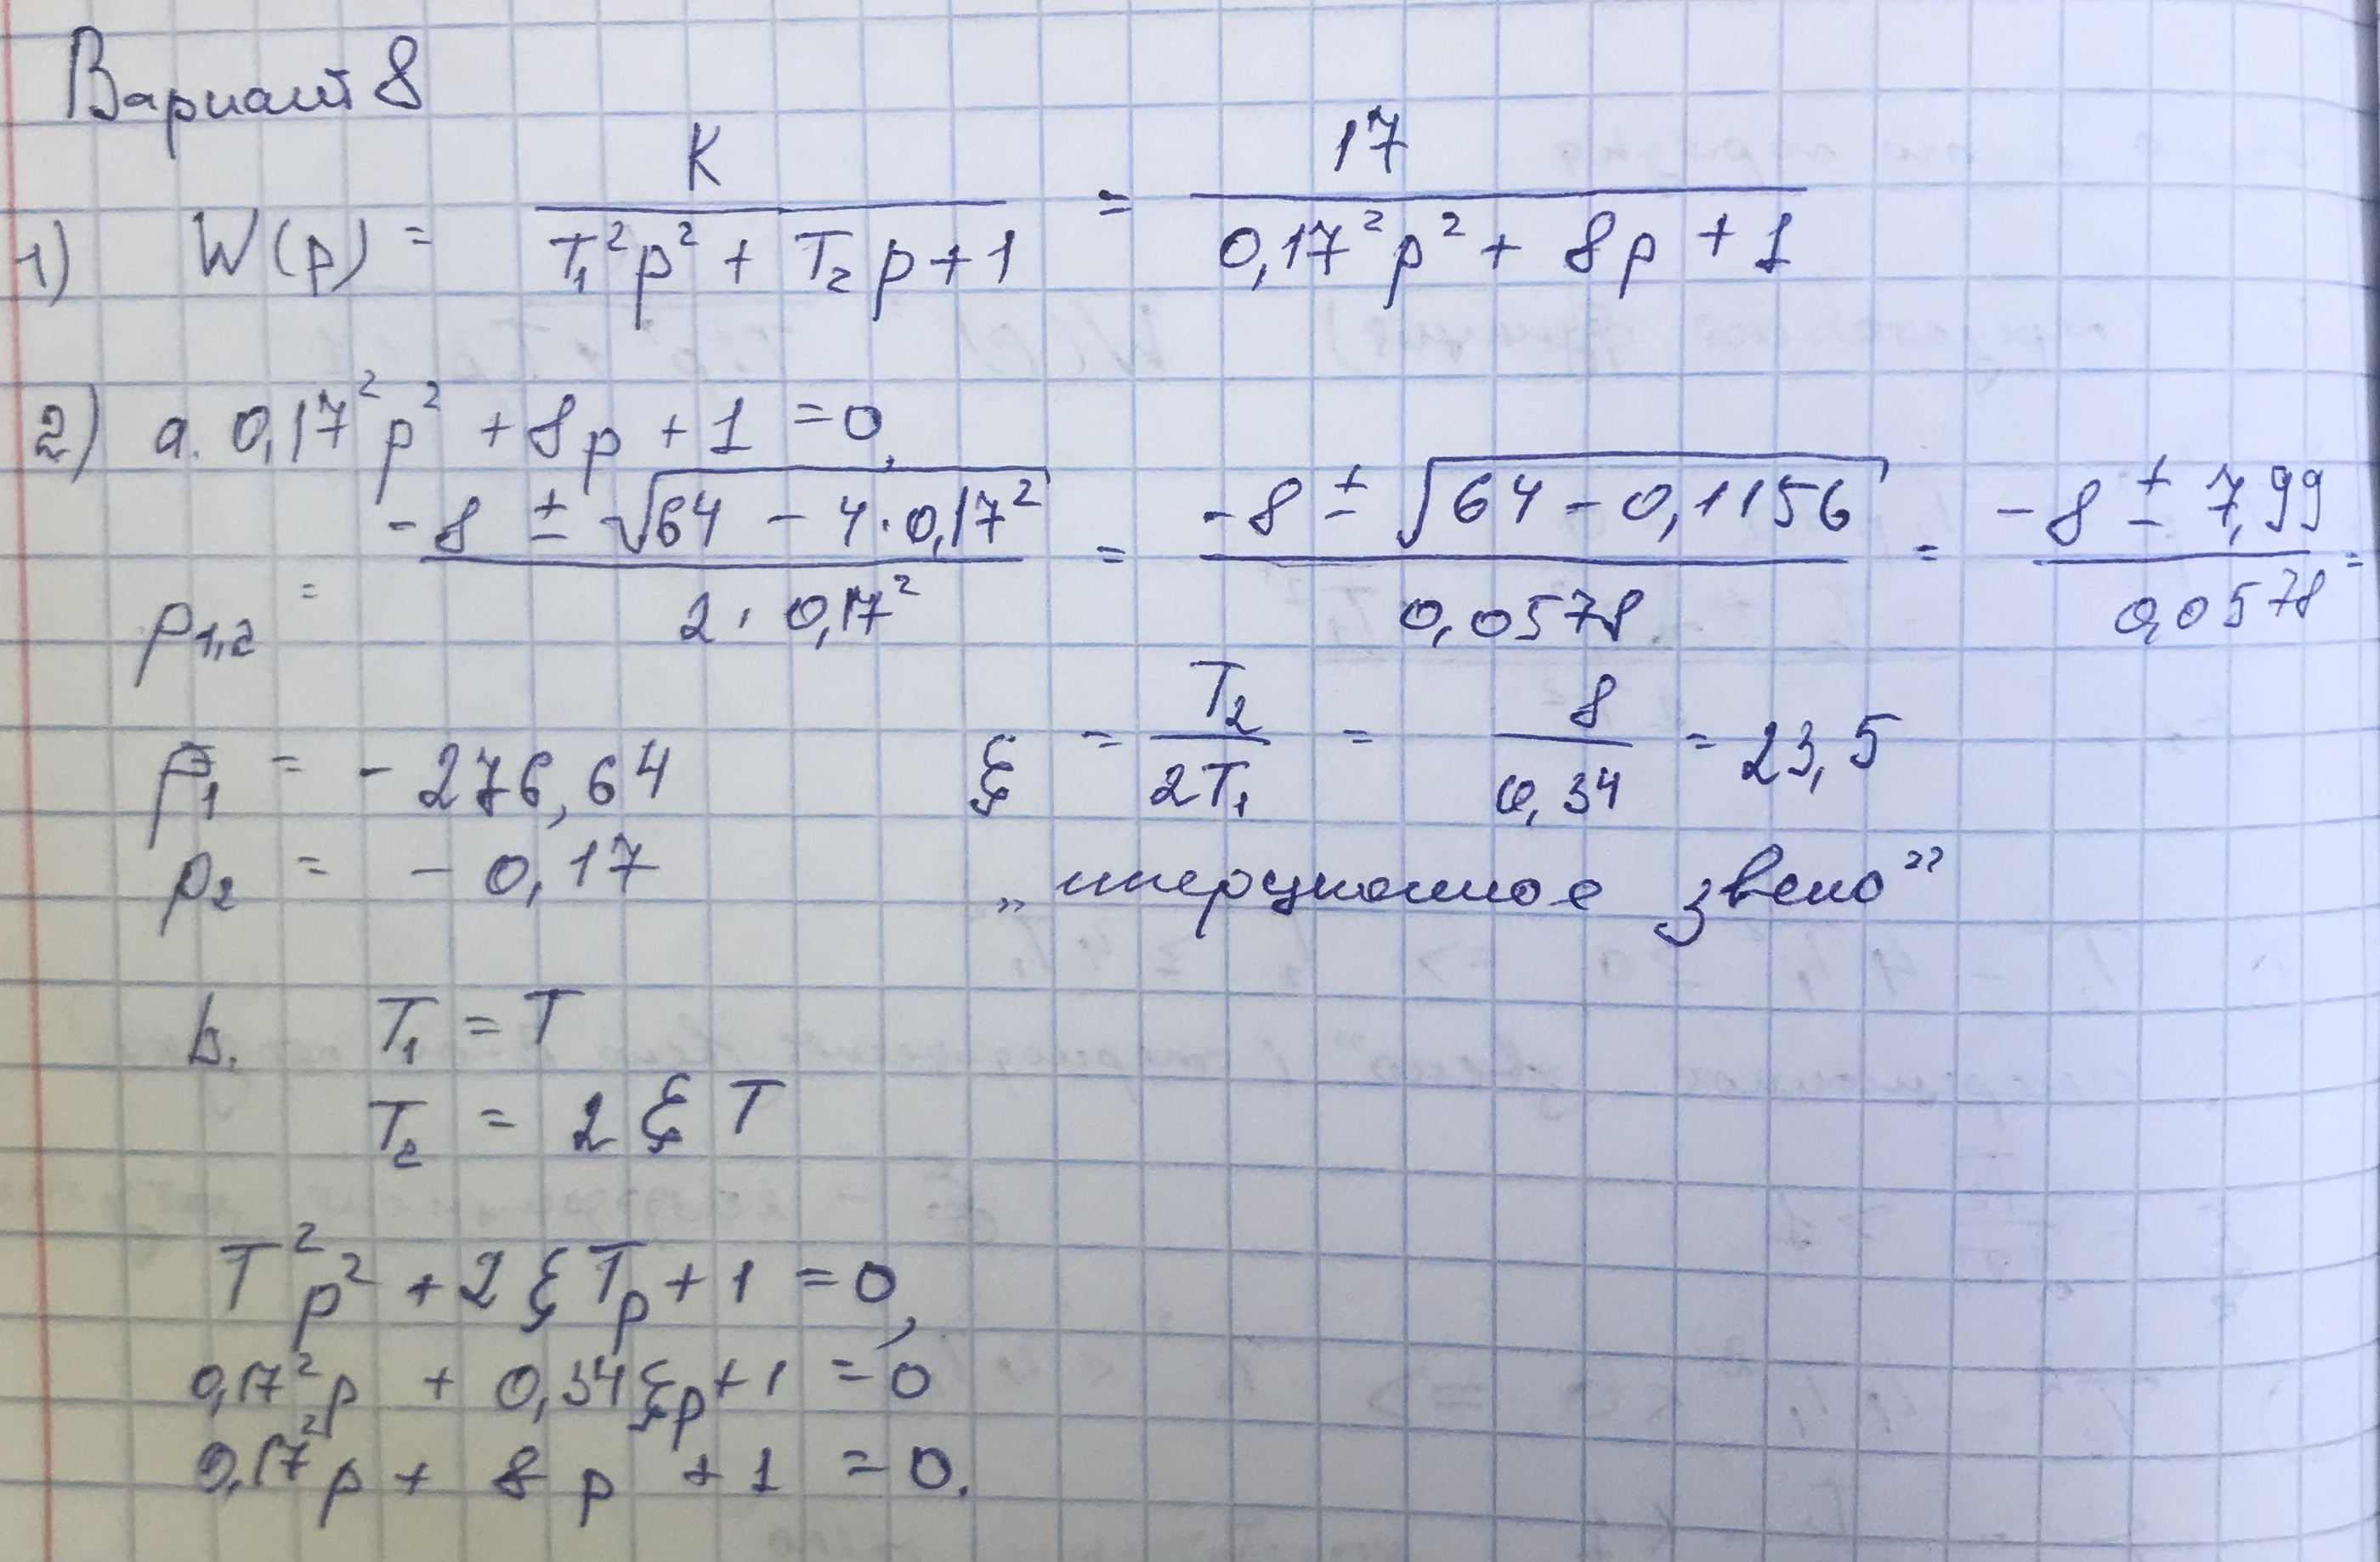 Вариант 8
1) W(p) = K / (T₁²p² + T₂p + 1) = 17 / (0,17²p² + 8p + 1)
2) a. 0,17²p² + 8p + 1 = 0,
p₁,₂ = (-8 ± √(64 - 4·0,17²)) / (2·0,17²) = (-8 ± √(64 - 0,1156)) / 0,0578 = (-8 ± 7,99) / 0,0578 =
p₁ = - 276,64
ξ = T₂ / 2T₁ = 8 / 0,34 = 23,5
p₂ = - 0,17
„инерционное звено”
b. T₁ = T
T₂ = 2 ξ T
T²p² + 2ξTp + 1 = 0,
0,17²p + 0,34ξp + 1 = 0
0,17²p + 8p + 1 = 0.